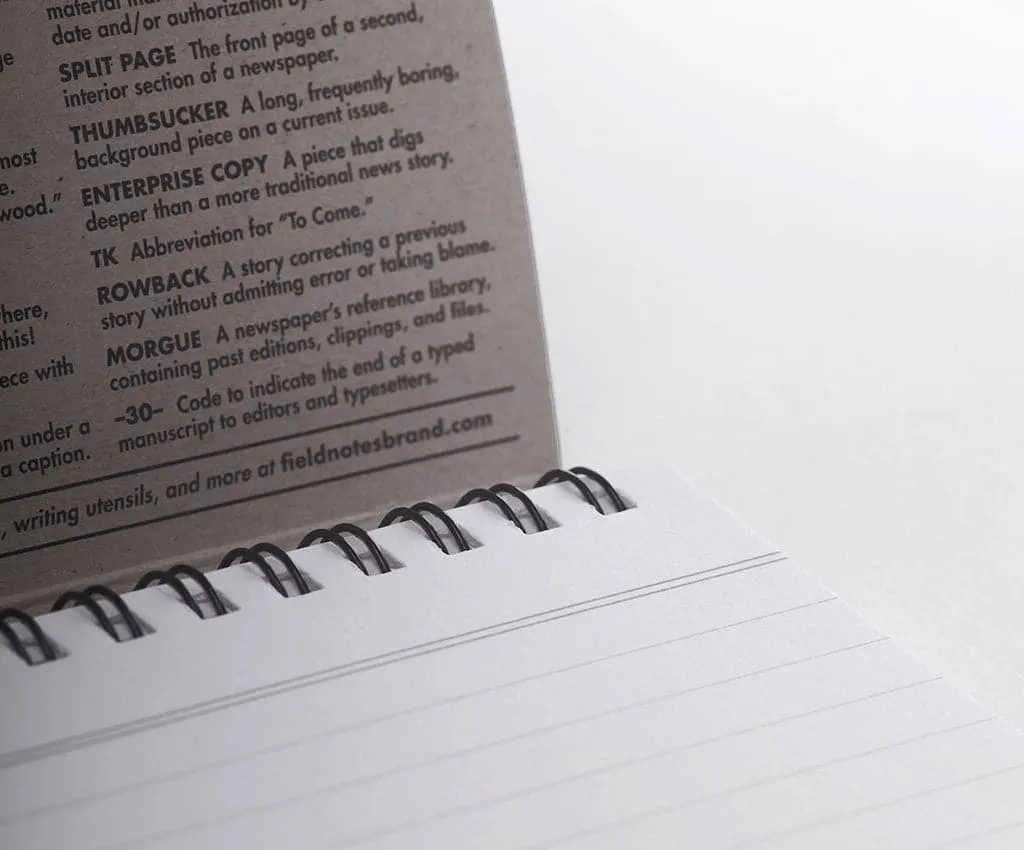 ge
most
e.
wood."
here,
this!
ece with
on under a
a caption.
material
date and/or authorization by
SPLIT PAGE The front page of a second,
interior section of a newspaper.
THUMBSUCKER A long, frequently boring,
background piece on a current issue.
ENTERPRISE COPY A piece that digs
deeper than a more traditional news story.
TK Abbreviation for "To Come."
ROWBACK A story correcting a previous
story without admitting error or taking blame.
MORGUE A newspaper's reference library,
containing past editions, clippings, and files.
–30– Code to indicate the end of a typed
manuscript to editors and typesetters.
, writing utensils, and more at fieldnotesbrand.com